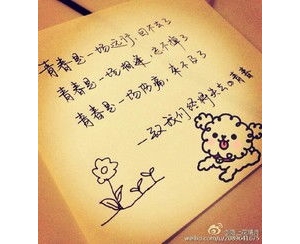 青春是一场远行,回不去了
青春是一场相逢,忘不掉了
青春是一场伤痛,来不及了
—致我们终将失去的青春